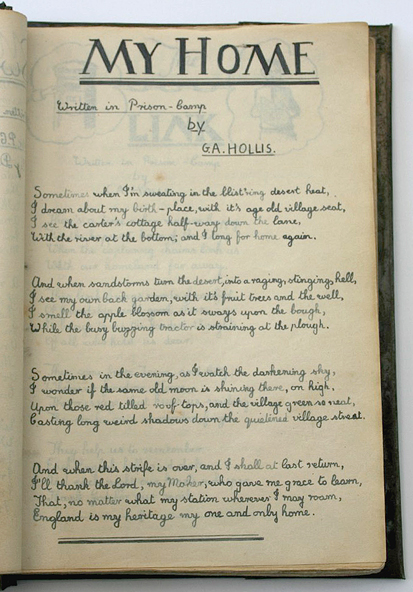 MY HOME
Written in Prison-Camp
by
G.A. HOLLIS.
Sometimes when I'm sweating in the blist'ring desert heat,
I dream about my birth-place, with it's age old village seat,
I see the carter's cottage half-way down the lane,
With the river at the bottom; and I long for home again.
And when sandstorms turn the desert, into a raging, stinging, hell,
I see my own back garden, with it's fruit trees and the well,
I smell the apple blossom as it sways upon the bough,
While the busy buzzing tractor is straining at the plough.
Sometimes in the evening, as I watch the darkening sky,
I wonder if the same old moon is shining there, on high,
Upon those red tilled roof-tops, and the village green so neat,
Casting long weird shadows down the quietened village street.
And when this strife is over, and I shall at last return,
I'll thank the Lord, my Maker, who gave me grace to learn,
That, no matter what my station wherever I may roam,
England is my heritage my one and only home.